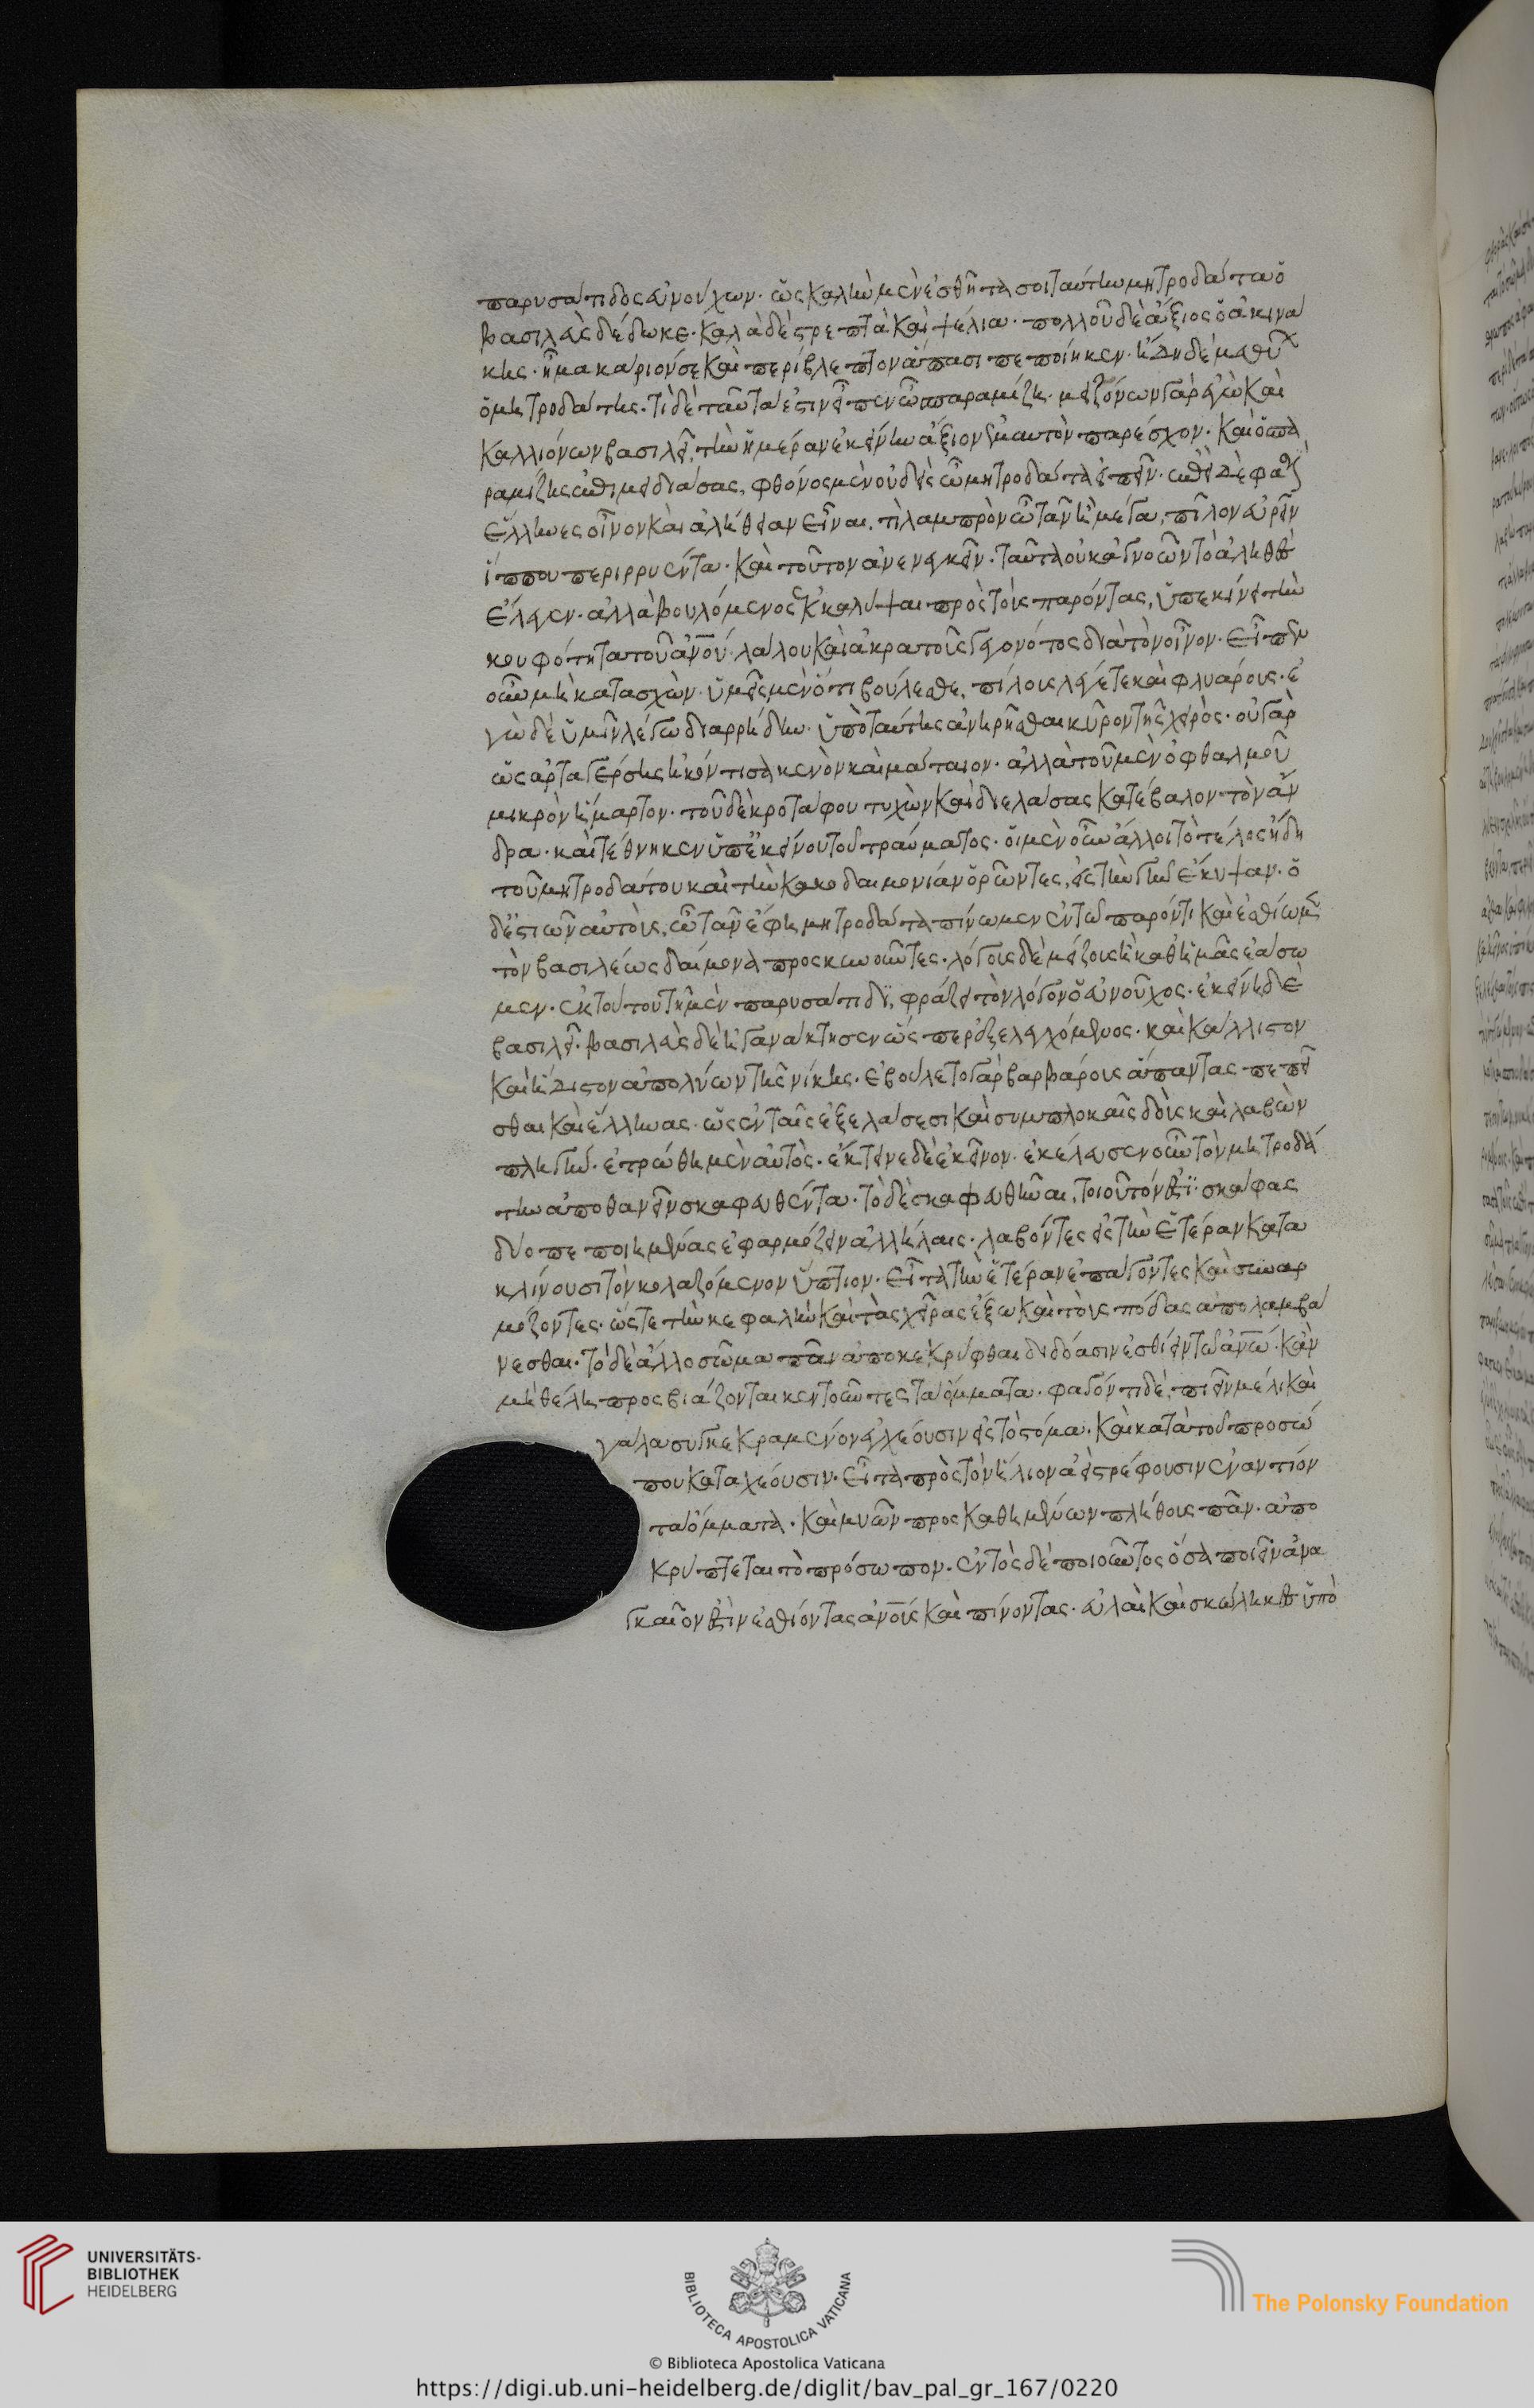 παρυσάτιδος εὐνούχων· ὡς καλὴν μὲν ἐσθῆτα σοι ταύτην μητροδάτα ὁ
βασιλεὺς δέδωκε· καλὰ δὲ στρεπτὰ καὶ ψέλια· πολλοῦ δὲ ἄξιος ὁ ἀκινά
κης· ἦ μακάριόν σε καὶ περίβλεπτον ἅπασι πεποίηκεν· ἤδη δὲ μεθύων
ὁ μητροδάτης· τί δὲ ταῦτα ἐστὶν εἶπεν ὦ σπαραμίζη· μειζόνων γὰρ ἐγὼ καὶ
καλλιόνων βασιλεῖ τὴν ἡμέραν ἐκείνην ἄξιον ἐμαυτὸν παρέσχον· καὶ ὁ σπα
ραμίζης ἐπιμειδιάσας, φθόνος μὲν οὐδεὶς ὦ μητροδάτα εἶπεν· ἐπεὶ δὲ φασὶν
ἕλληνες οἶνον καὶ ἀλήθειαν εἶναι, τί λαμπρὸν ὦ τᾶν ἢ μέγα, πῖλον εὑρεῖν
ἵππου περιρρυέντα· καὶ τοῦτον ἀνενεγκεῖν· ταῦτα οὐκ ἀγνοῶν τὸ ἀληθὲς
ἔλεγεν· ἀλλὰ βουλόμενος ἐκκαλύψαι πρὸς τοὺς παρόντας, ὑπεκίνει τὴν
κουφότητα τοῦ ἀνοῦ λάλου καὶ ἀκρατοῦς γεγονότος διὰ τὸν οἶνον· εἶπεν
οὖν μὴ κατασχὼν· ὑμεῖς μὲν ὅτι βούλεσθε, πίλους λέγετε καὶ φλυάρους· ἐ
γὼ δὲ ὑμῖν λέγω διαρρήδην· ὑπὸ ταύτης ἀνηρῆσθαι κῦρον τῆς χειρὸς· οὐ γὰρ
ὡς ἀρταγέρσης ἠκόντισα κενὸν καὶ μάταιον· ἀλλὰ τοῦ μὲν ὀφθαλμοῦ
μικρὸν ἥμαρτον· τοῦ δὲ κροτάφου τυχὼν καὶ διελάσας κατέβαλον τὸν ἄν
δρα· καὶ τέθνηκεν ὑπ' ἐκείνου τοῦ τραύματος· οἱ μὲν οὖν ἄλλοι τὸ τέλος ἤδη
τοῦ μητροδάτου καὶ τὴν κακοδαιμονίαν ὁρῶντες, εἰς τὴν γῆν ἔκυψαν· ὁ
δὲ ἑστιῶν αὐτοὺς, ὦ τᾶν ἔφη μητροδάτα πίνωμεν ἐν τῷ παρόντι καὶ ἐσθίωμεν
τὸν βασιλέως δαίμονα προσκυνοῦντες· λόγους δὲ μείζους ἢ καθ' ἡμᾶς ἐάσω
μεν· ἐκ τούτου τῇ μὲν παρυσάτιδι, φράζει τὸν λόγον ὁ εὐνοῦχος· ἐκείνη δὲ
βασιλεῖ· βασιλεὺς δὲ ἠγανάκτησεν ὥσπερ ἐξελεγχόμενος· καὶ κάλλιστον
καὶ ἥδιστον ἀπολύων τῆς νίκης· ἐβούλετο γὰρ βαρβάρους ἅπαντας πεπεῖ
σθαι καὶ ἕλληνας· ὡς ἐν ταῖς ἐξελάσεσι καὶ συμπλοκαῖς δοὺς καὶ λαβὼν
πληγὴν· ἐτρώθη μὲν αὐτὸς· ἔκτεινε δὲ ἐκεῖνον· ἐκέλευσεν οὖν τὸν μητροδά
την ἀποθανεῖν σκαφευθέντα· τὸ δὲ σκαφευθῆναι, τοιοῦτόν ἐστι· σκάφας
δύο πεποιημένας ἐφαρμόζειν ἀλλήλαις· λαβόντες εἰς τὴν ἑτέραν κατα
κλίνουσι τὸν κολαζόμενον ὕπτιον· εἶτα τὴν ἑτέραν ἐπάγοντες καὶ συναρ
μόζοντες· ὥστε τὴν κεφαλὴν καὶ τὰς χεῖρας ἔξω καὶ τοὺς πόδας ἀπολαμβά
νεσθαι· τὸ δὲ ἄλλο σῶμα πᾶν ἀποκεκρύφθαι διδόασιν ἐσθίειν τῷ ἀνῶ· κἂν
μὴ θέλη προσβιάζονται κεντοῦντες τὰ ὄμματα· φαγόντι δὲ, πιεῖν μέλι καὶ
γάλα συγκεκραμένον ἐγχέουσιν εἰς τὸ στόμα· καὶ κατὰ τοῦ προσώ
που καταχέουσιν· εἶτα πρὸς τὸν ἥλιον ἀεὶ στρέφουσιν ἐναντίον
τὰ ὄμματα· καὶ μυιῶν προσκαθημένων πλήθους πᾶν· ἀπο
κρύπτεται τὸ πρόσωπον· ἐντὸς δὲ ποιοῦντος ὅσα ποιεῖν ἀνα
γκαῖον ἐστὶν ἐσθίοντας ἀνοῦς καὶ πίνοντας· εὐλαὶ καὶ σκώληκες ὑπὸ
UNIVERSITÄTS-
BIBLIOTHEK
HEIDELBERG
BIBLIOTECA APOSTOLICA VATICANA
The Polonsky Foundation
© Biblioteca Apostolica Vaticana
https://digi.ub.uni-heidelberg.de/diglit/bav_pal_gr_167/0220